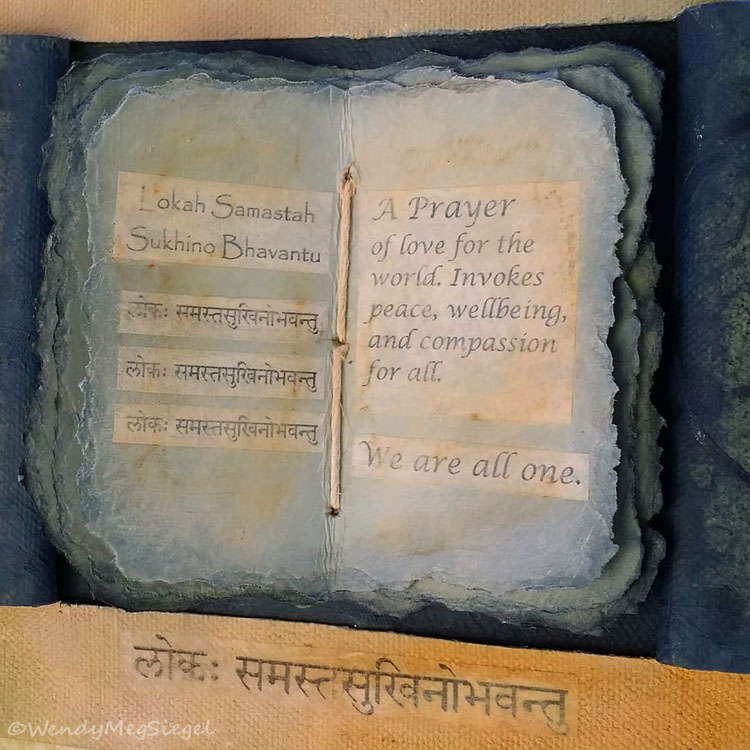 Lokah Samastah
Sukhino Bhavantu
लोकः समस्तसुखिनोभवन्तु
लोकः समस्तसुखिनोभवन्तु
लोकः समस्तसुखिनोभवन्तु
A Prayer
of love for the
world. Invokes
peace, wellbeing,
and compassion
for all.
We are all one.
लोकः समस्तसुखिनोभवन्तु
©WendyMegSiegel